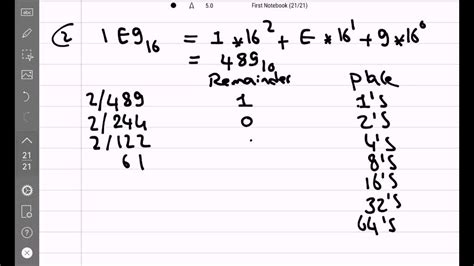 abc
5.0 First Notebook (21/21)
2 1E9₁₆ = 1*16² + E*16¹ + 9*16⁰
= 489₁₀
Remainder Place
2/489 1 1's
2/244 0 2's
2/122 4's
61 8's
16's
32's
64's
21
21